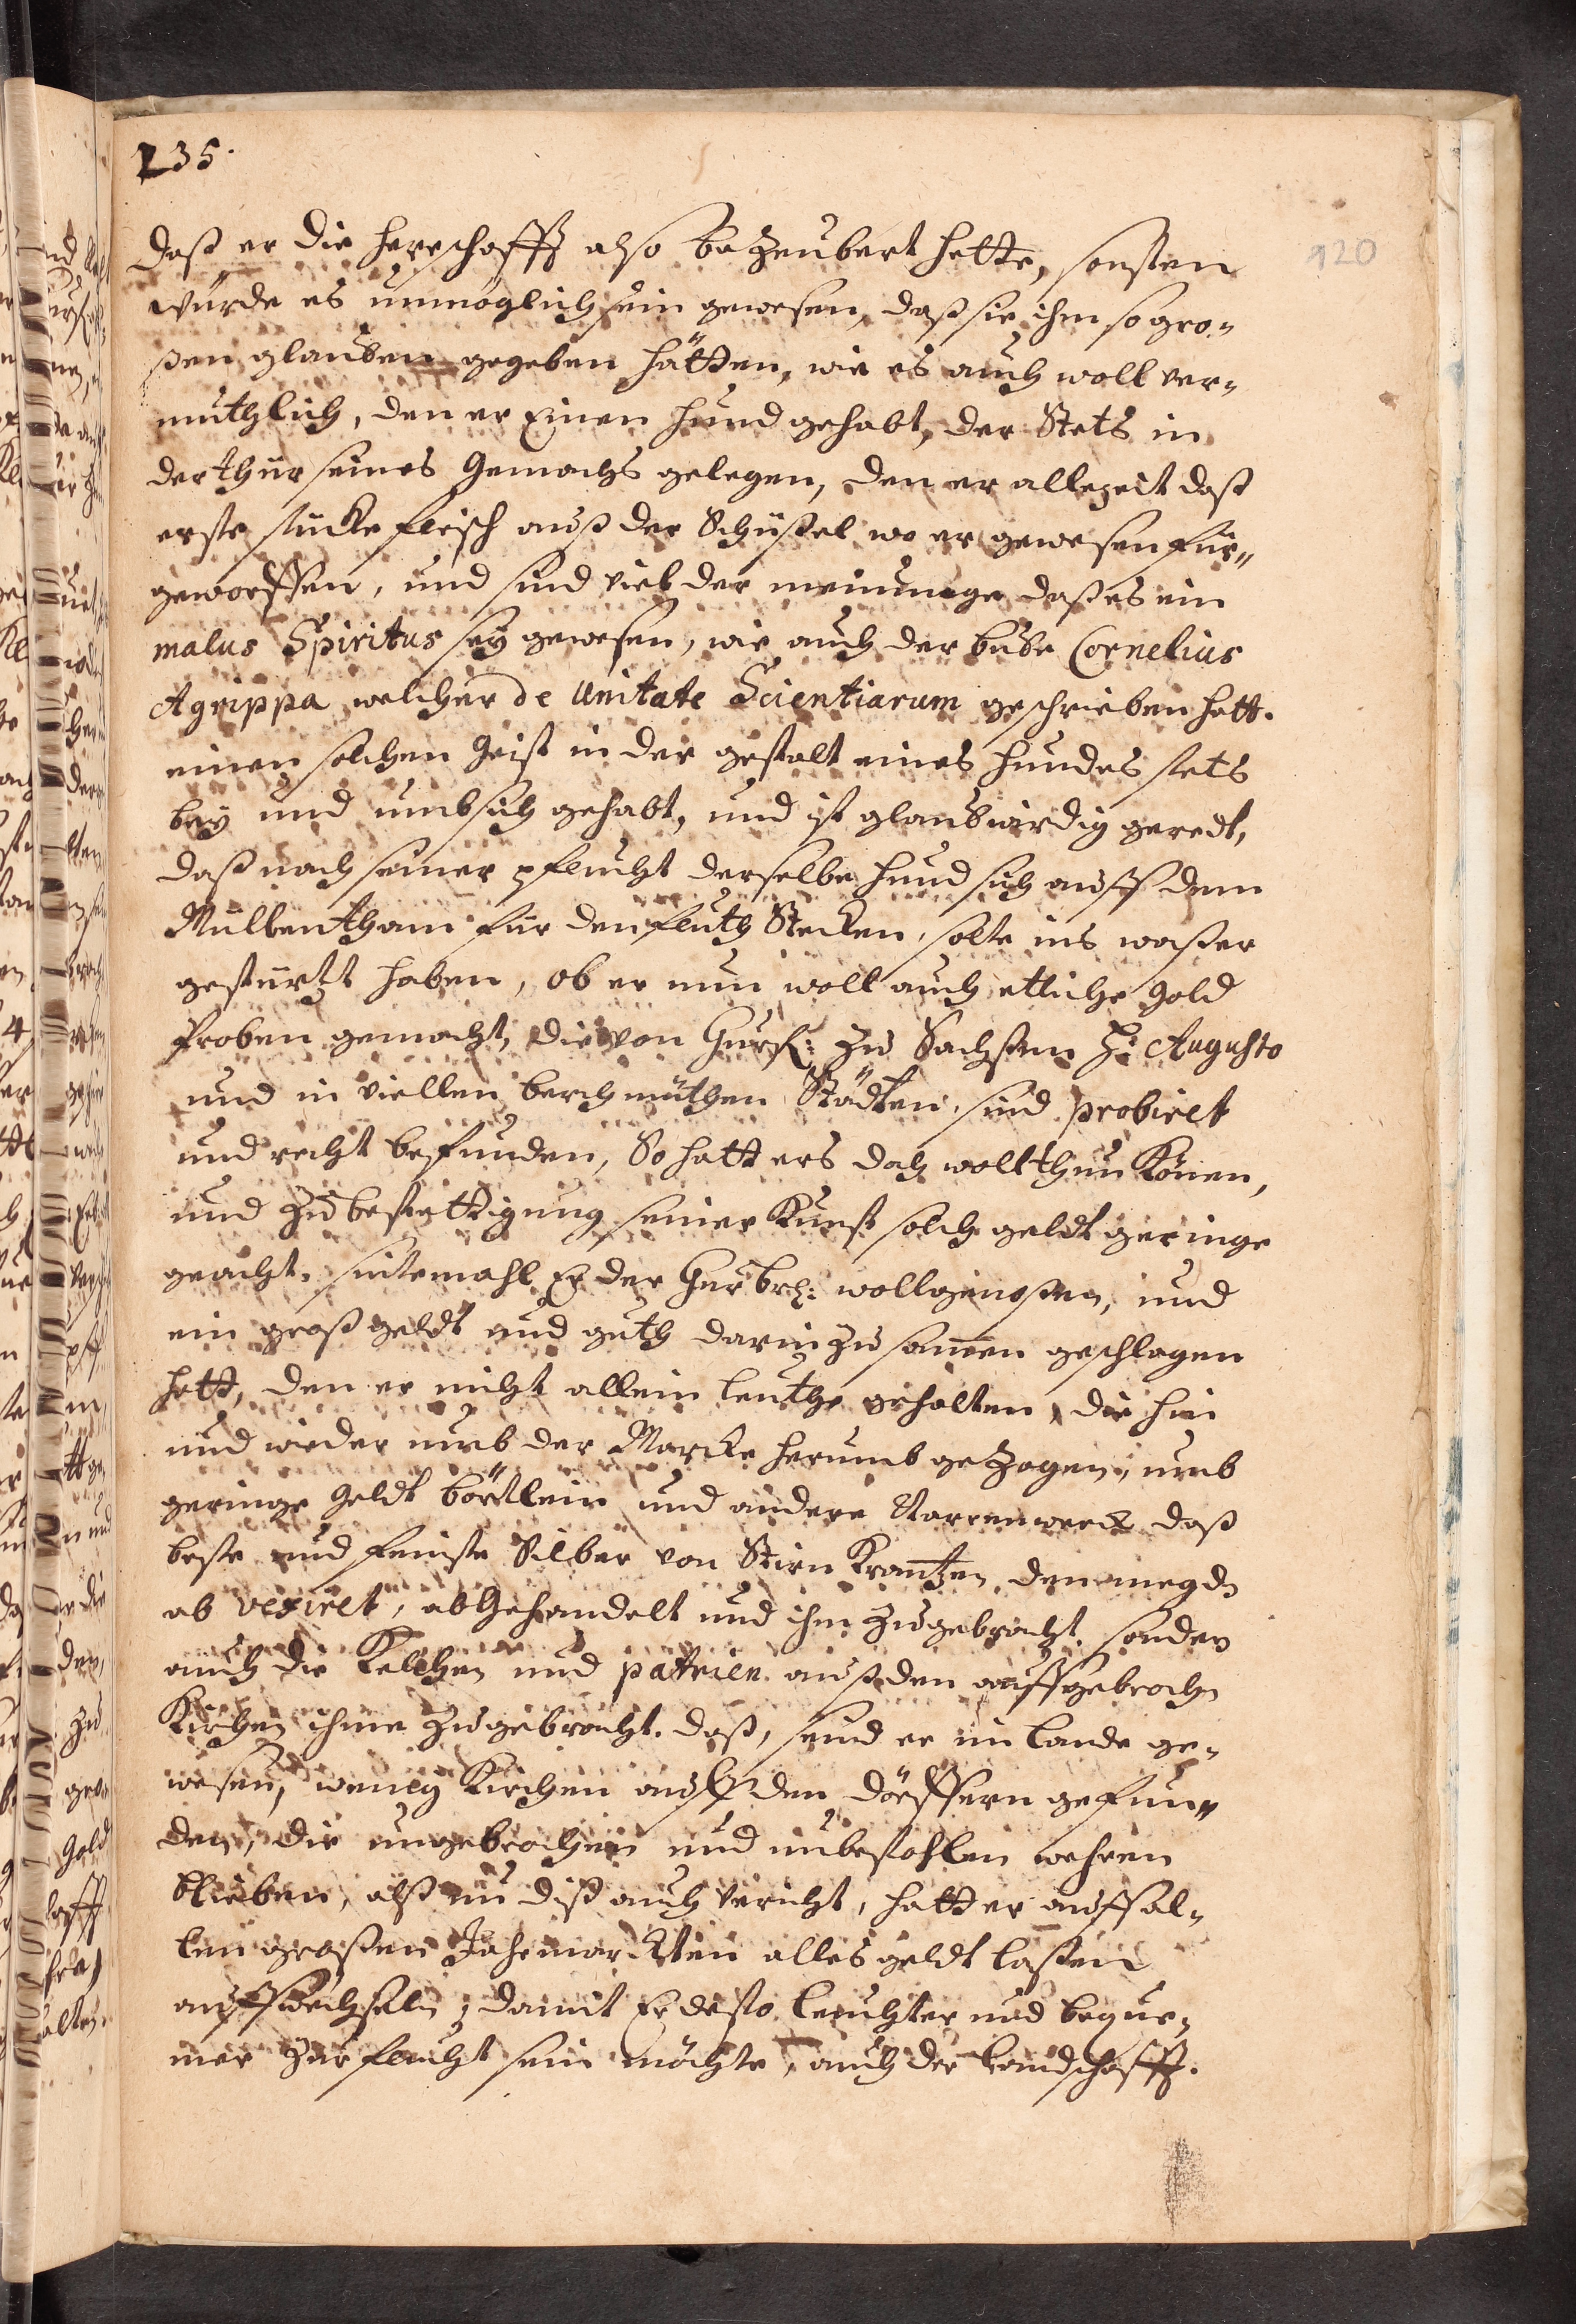 235.
120
daß er die herrschafft also bezeubert hette, sonsten
würde es unmöglich sein gewesen, daß sie ihm so gro-
ßen glauben gegeben hätten, wie es auch woll ver-
muthlich, den er Einen hund gehabt, der Stets in
der thür seines Gemachs gelegen, den er allezeit daß
erste stücke fleisch auß der Schüßel wo er gewesen für-
geworffen, und sind viel der meinunge daß es ein
malus Spiritus seÿ gewesen, wie auch der bube Cornelius
Agrippa welcher de Unitate Scientiarum geschrieben hatt.
einen solchen Geist in der gestalt eines hundes stets
beÿ und umb sich gehabt, und ist glaubwirdig geredt,
daß nach seiner pflucht derselbe hund sich auff dem
Müllentham für den fluth Stecken, solte ins waßer
gestürtzt haben, ob er nun woll auch etliche Gold
Proben gemacht, die von Churf: zu Sachsen H: Augusto
und in viellen berchmüthen Städten, sind probiret
und recht befunden, So hatt ers doch woll thun Könen,
und zu bestettigung seiner Kunst solch geldt geringe
geacht. sintemahl Er der Churbr: woll genoßen, und
ein groß geldt und guth darin zusamen geschlagen
hatt, den er nicht allein leuthe gehalten, die hin
und wieder umb der Marcke herumb gezogen, umb
geringe Geldt börtlein und andere Narrenwerck daß
beste und feinste Silber von Stirn Krantzen den megdn
ab vexiret, abgehandelt und ihm zugebracht. sonder
auch die Kelchen und patrien auß den auffgebrochn
Kirchen ihme zugebracht. daß, seind er im lande ge-
wesen, wenig Kirchen auff den dörffern gefun-
den, die ungebrochen und unbestohlen wehren
blieben, alß nu diß auch vericht, hatt er auff al-
len großen Jahrmarckten alles geldt laßen
auffwechseln, damit Er desto leuchter und beque-
mer zur flucht sein möchte, auch der landschafft.